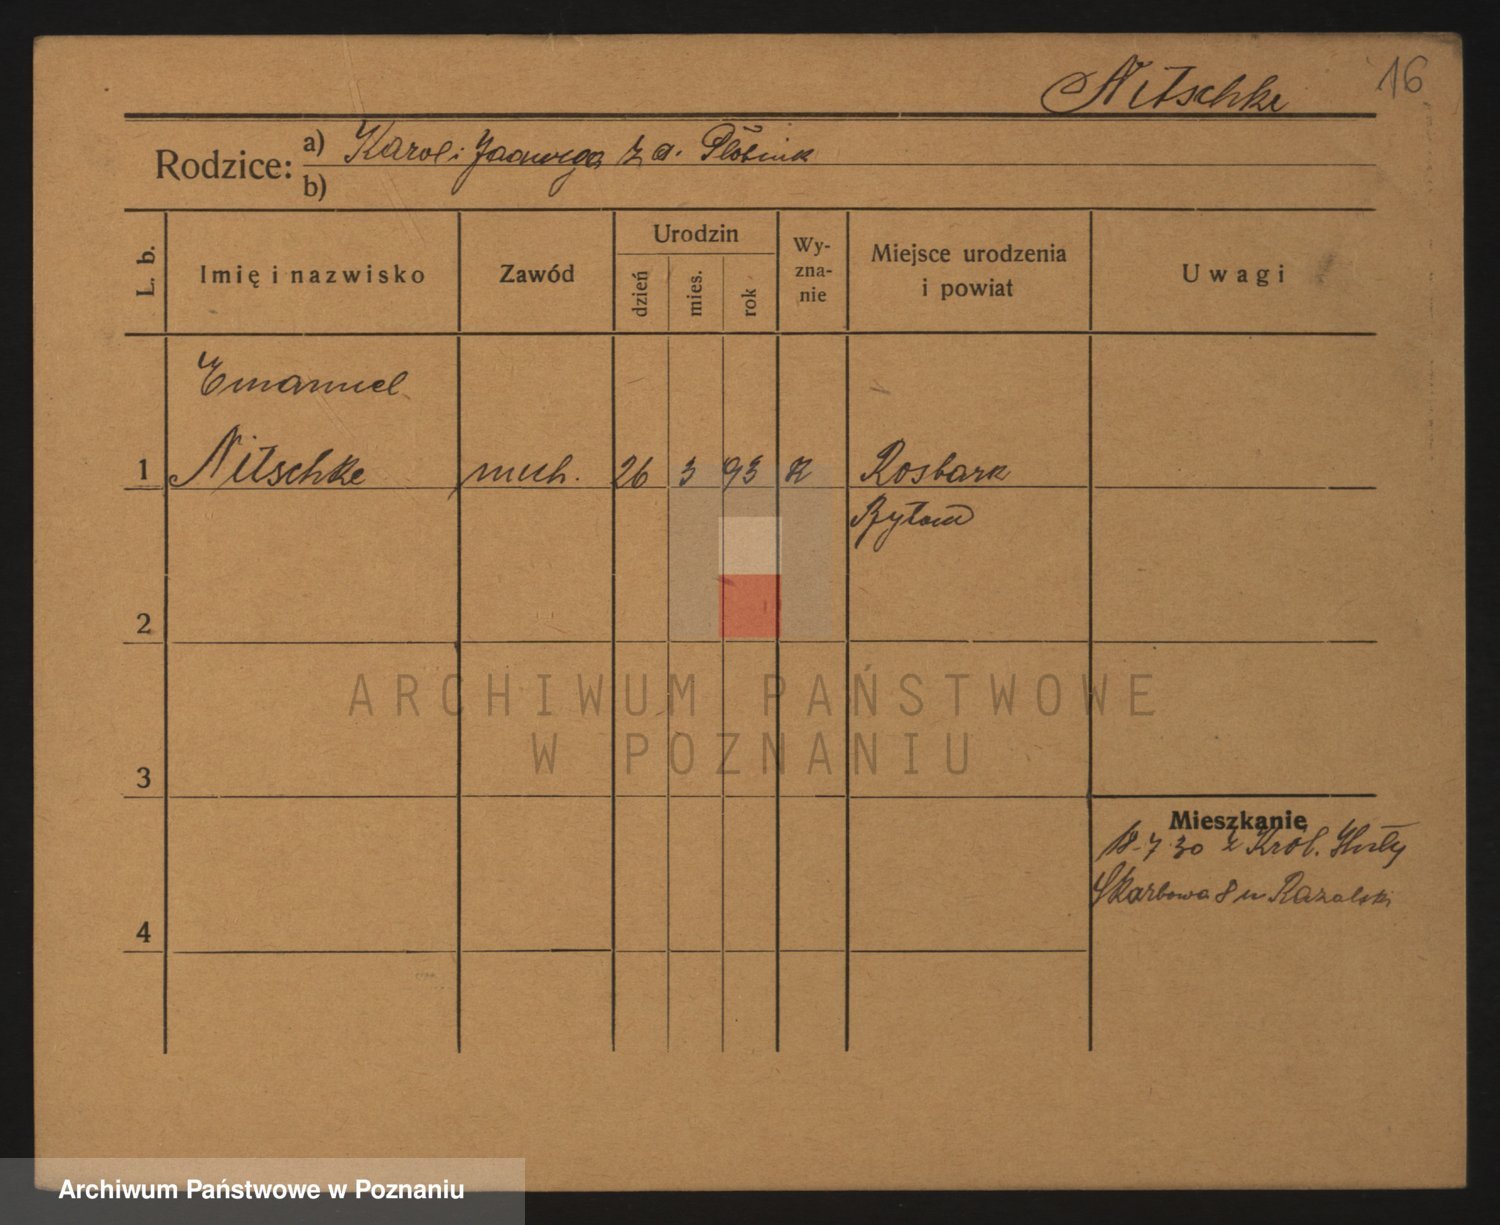 Nitschke 16
Rodzice: a) Karol i Jadwiga z d.
b)
L. b. Imię i nazwisko Zawód Urodzin dzień mies. rok Wyznanie Miejsce urodzenia i powiat Uwagi
Emanuel
1 Nitschke mech. 26 3 93 K Rosbark
Bytom
2
ARCHIWUM PAŃSTWOWE
W POZNANIU
3
Mieszkanie
18-7 30 z Król. Huty
Skarbowa 8 m
4
Archiwum Państwowe w Poznaniu